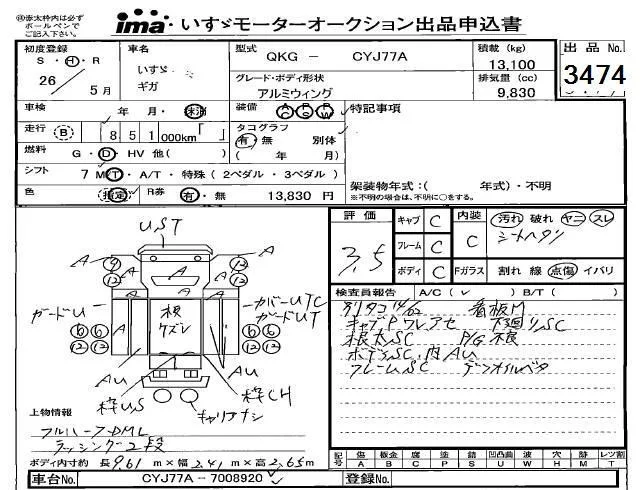 ※赤太枠内は必ず
ボールペンで
ご記入下さい。
ima・いすゞモーターオークション出品申込書
初度登録
S・H・R
26
5月
車名
いすゞ
ギガ
型式
QKG - CYJ77A
グレード・ボディ形状
アルミウィング
積載 (kg)
13,100
排気量 (cc)
9,830
出品 No.
3474
車検
年 月・未満
装備
AC PS PW
特記事項
走行 B
851,000km「 」
タコグラフ
有・無 別体
( 年 月)
燃料
G・D・HV 他( )
シフト
7 MT・A/T・特殊 ( 2ペダル ・ 3ペダル )
色
指定
R券
有・無 13,830 円
架装物年式：( 年式)・不明
※不明の場合は、不明に○をする。
評価
3.5
キャブ C
フレーム C
ボディ C
内装
C
汚れ 破れ ヤニ スレ
シートヘタリ
Fガラス
割れ 線 点傷 イバリ
検査員報告 A/C ( ✓ ) B/T ( )
看板M
下廻りSC
ボデーSC、内AU
フレームSC
UST
A
A
9
12
12
12
A
A
A
A
ガードU
カバーUTC
ガードUT
根
ケズレ
6 6
12 12
6 6
12 12
AU
AU
枠US
枠CH
キャリアナシ
上物情報
フルハーフDML
ラッシング2段
ボディ内寸約 長 9.61 m×幅 2.41 m×高 2.65 m
記号
傷 A
鈑金 B
腐 C
塗 P
錆 S
凹凸曲 U
波 W
穴 H
跡 M
レツ割 T
車台No. CYJ77A - 7008920
登録No.